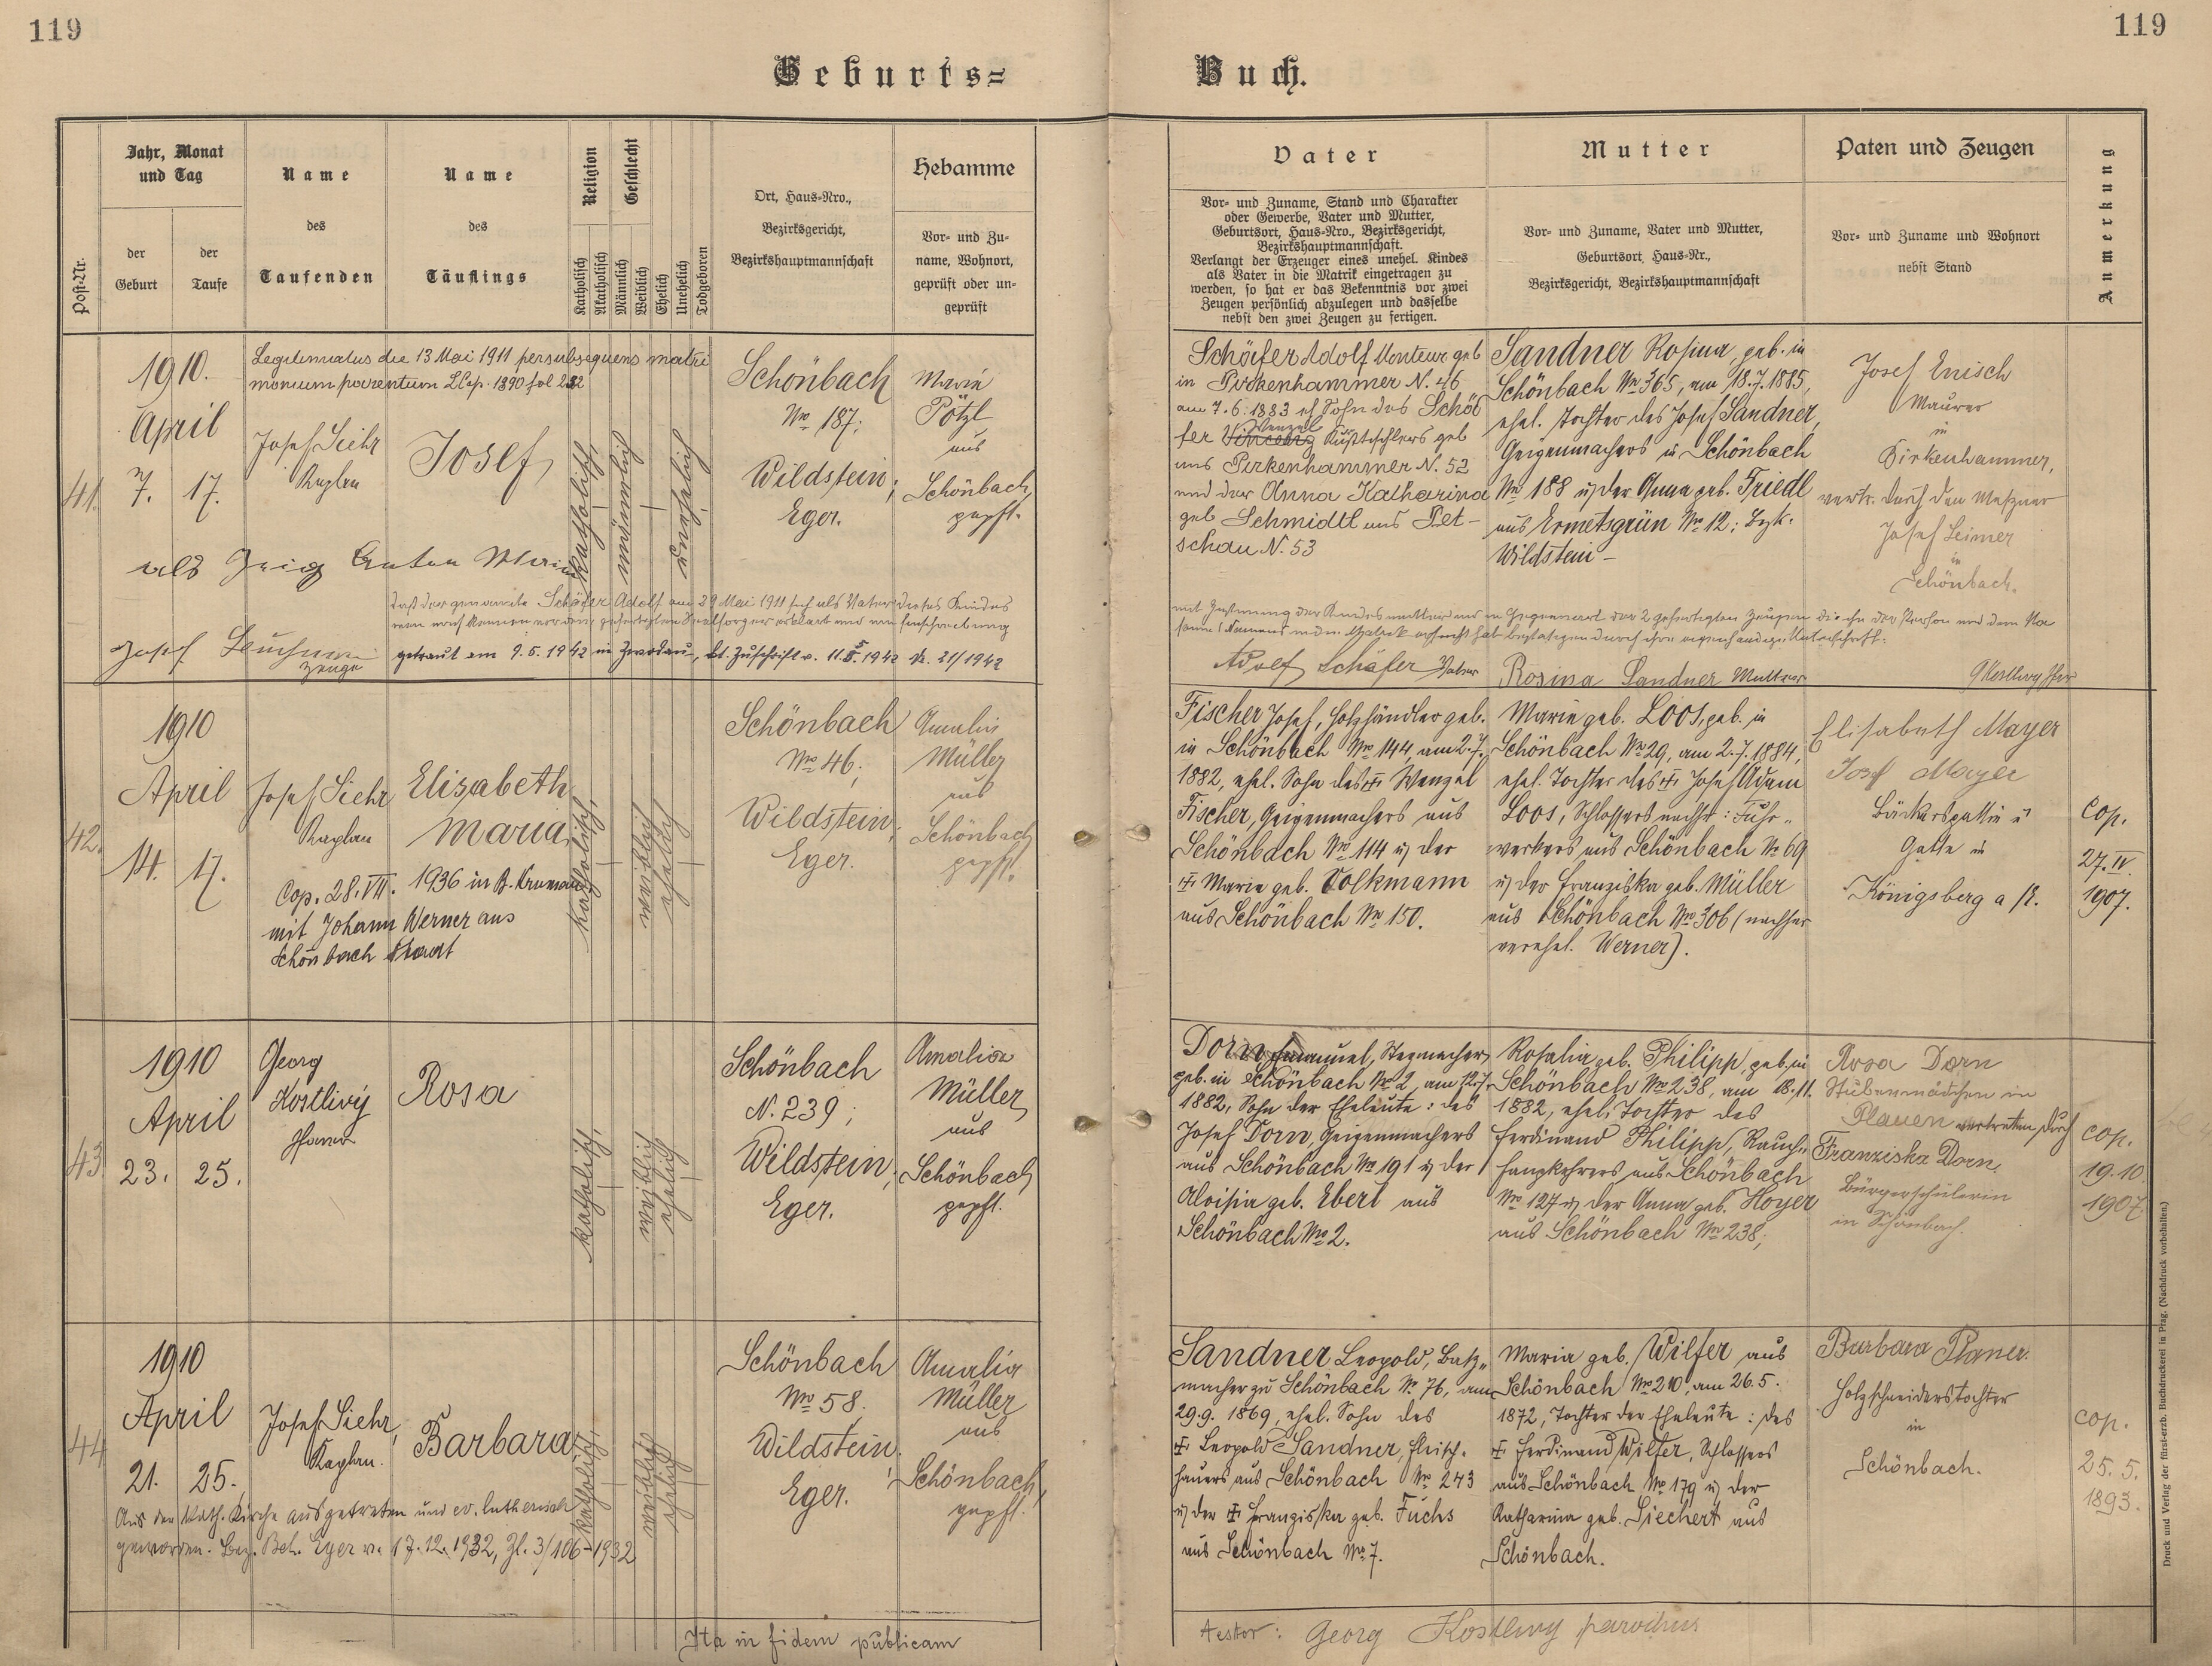 119
119
Geburts=
Buch.
Post-Nr.
Jahr, Monat
und Tag
der
Geburt
der
Taufe
Name
des
Taufenden
Name
des
Täuflings
Religion
Katholisch
Akatholisch
Geschlecht
Männlich
Weiblich
Ehelich
Unehelich
Todgeboren
Ort, Haus-Nro.,
Bezirksgericht,
Bezirkshauptmannschaft
Hebamme
Vor- und Zu-
name, Wohnort,
geprüft oder un-
geprüft
Vater
Vor- und Zuname, Stand und Charakter
oder Gewerbe, Vater und Mutter,
Geburtsort, Haus-Nro., Bezirksgericht,
Bezirkshauptmannschaft.
Verlangt der Erzeuger eines unehel. Kindes
als Vater in die Matrik eingetragen zu
werden, so hat er das Bekenntnis vor zwei
Zeugen persönlich abzulegen und dasselbe
nebst den zwei Zeugen zu fertigen.
Mutter
Vor- und Zuname, Vater und Mutter,
Geburtsort, Haus-Nr.,
Bezirksgericht, Bezirkshauptmannschaft
Paten und Zeugen
Vor- und Zuname und Wohnort
nebst Stand
Anmerkung
41.
1910.
April
7. 17.
Legitimatus die 13 Mai 1911 per subsequens matri
monium parentum
Josef Siehr
Kaplan
Josef
katholisch
männlich
unehelich
Schönbach
Nro 187;
Wildstein;
Eger.
Marie
Pötzl
aus
Schönbach
gepft.
als Zeig Anton
Josef
Zeuge
daß der genannte Schäfer Adolf am 29 Mai 1911 sich als Vater dieses Kindes
getraut am 9.5.1942 in Zwodau, lt. Zuschrift v. 11.5.1942 Nr. 21/1942
Schäfer Adolf Monteur geb
in Pirkenhammer N. 46
am 7.6.1883 eh Sohn des Schä
fer Wenzel Kunsttischlers geb
aus Pirkenhammer N. 52
und der Anna Katharina
geb Schmidtl aus Pet-
schau N. 53
Sandner Rosina, geb. in
Schönbach Nro 365, am 18.7.1885,
ehel. Tochter des Josef Sandner,
Geigenmachers in Schönbach
Nro 188 u. der Anna geb. Friedl
aus Ermetsgrün Nro 12; Bzk.
Wildstein –
Josef Enisch
Maurer
in
Birkenhammer,
vertr. durch den Meßner
Josef Leimer
in
Schönbach.
Adolf Schäfer Vater
Rosina Sandner Mutter
42.
1910
April
14. 17.
Josef Siehr
Kaplan
Elisabeth
Maria
Cop. 28. VII. 1936 in B. Krumau
mit Johann Werner aus
Schönbach Stadt
katholisch
weiblich
ehelich
Schönbach
Nro 46;
Wildstein;
Eger.
Amalia
Müller
aus
Schönbach
gepft.
Fischer Josef, Holzhändler geb.
in Schönbach Nro 144, am 2.7.
1882, ehel. Sohn des ✠ Wenzel
Fischer, Geigenmachers aus
Schönbach Nro 114 u. der
✠ Marie geb. Volkmann
aus Schönbach Nro 150.
Marie geb. Loos, geb. in
Schönbach Nro 29, am 2.7.1884,
ehel. Tochter des ✠ Josef Adam
Loos, Schlossers nachh: Fuhr-
werkers aus Schönbach Nro 69
u. der Franziska geb. Müller
aus Schönbach Nro 306 (nachher
verehel. Werner).
Elisabeth Mayer
Josef Mayer
Bäckersgattin u
Gatte in
Königsberg a/E.
cop.
27. IV.
1907.
43
1910
April
23. 25.
Georg
Kostlivý
Pfarrer
Rosa
katholisch
weiblich
ehelich
Schönbach
N. 239;
Wildstein;
Eger.
Amalia
Müller
aus
Schönbach
gepft.
Dorn Emanuel, Stegmacher
geb. in Schönbach Nro 2, am 12.7.
1882, Sohn der Eheleute: des
Josef Dorn, Geigenmachers
aus Schönbach Nro 191 u. der
Aloisia geb. Ebert aus
Schönbach Nro 2.
Rosalia geb. Philipp, geb. in
Schönbach Nro 238, am 18.11.
1882, ehel. Tochter des
Ferdinand Philipp, Rauch-
fangkehrers aus Schönbach
Nro 127 u. der Anna geb. Hoyer
aus Schönbach Nro 238;
Rosa Dorn
Stubenmädchen in
Plauen vertreten durch
Franziska Dorn,
Bürgerschülerin
in Schönbach.
cop.
19.10
1907
44
1910
April
21. 25.
Josef Siehr,
Kaplan.
Barbara
katholisch
weiblich
ehelich
Aus der kath. Kirche ausgetreten und ev. lutherisch
geworden. Bez. Beh. Eger v. 17.12.1932, Zl. 3/106-1932
Schönbach
Nro 58.
Wildstein;
Eger.
Amalia
Müller
aus
Schönbach,
gepft.
Sandner Leopold, Baß-
macher zu Schönbach Nr. 76, am
29.9. 1869, ehel. Sohn des
✠ Leopold Sandner, Fleisch-
hauers aus Schönbach Nro 243
u. der ✠ Franziska geb. Fuchs
aus Schönbach Nro 7.
Maria geb. Wilfer aus
Schönbach Nro 210, am 26.5.
1872, Tochter der Eheleute: des
✠ Ferdinand Wilfer, Schlossers
aus Schönbach Nro 179 u. der
Katharina geb. Siechert aus
Schönbach.
Barbara Planer.
Holzschneiderstochter
in
Schönbach.
cop.
25. 5.
1893.
Ita in fidem publicam
Testor: Georg Kostlivy parochus
Druck und Verlag der fürst-erzb. Buchdruckerei in Prag. (Nachdruck vorbehalten.)